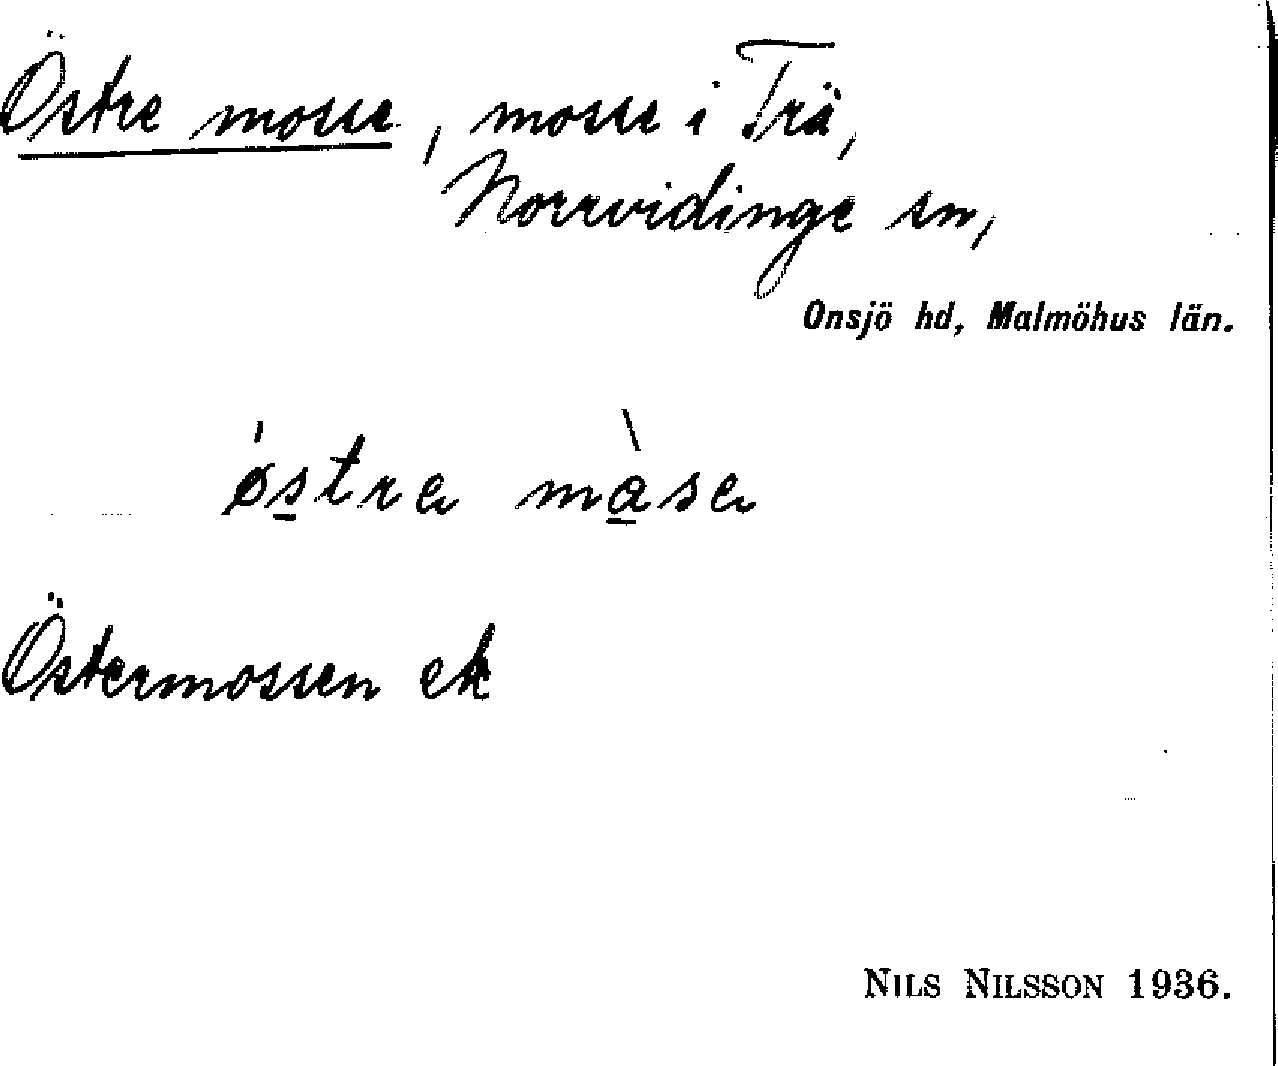 Östre mosse, mosse i Trä,
Norrvidinge sn,
Onsjö hd, Malmöhus län.
ǿstra màsa
Östermossen ek
NILS NILSSON 1936.